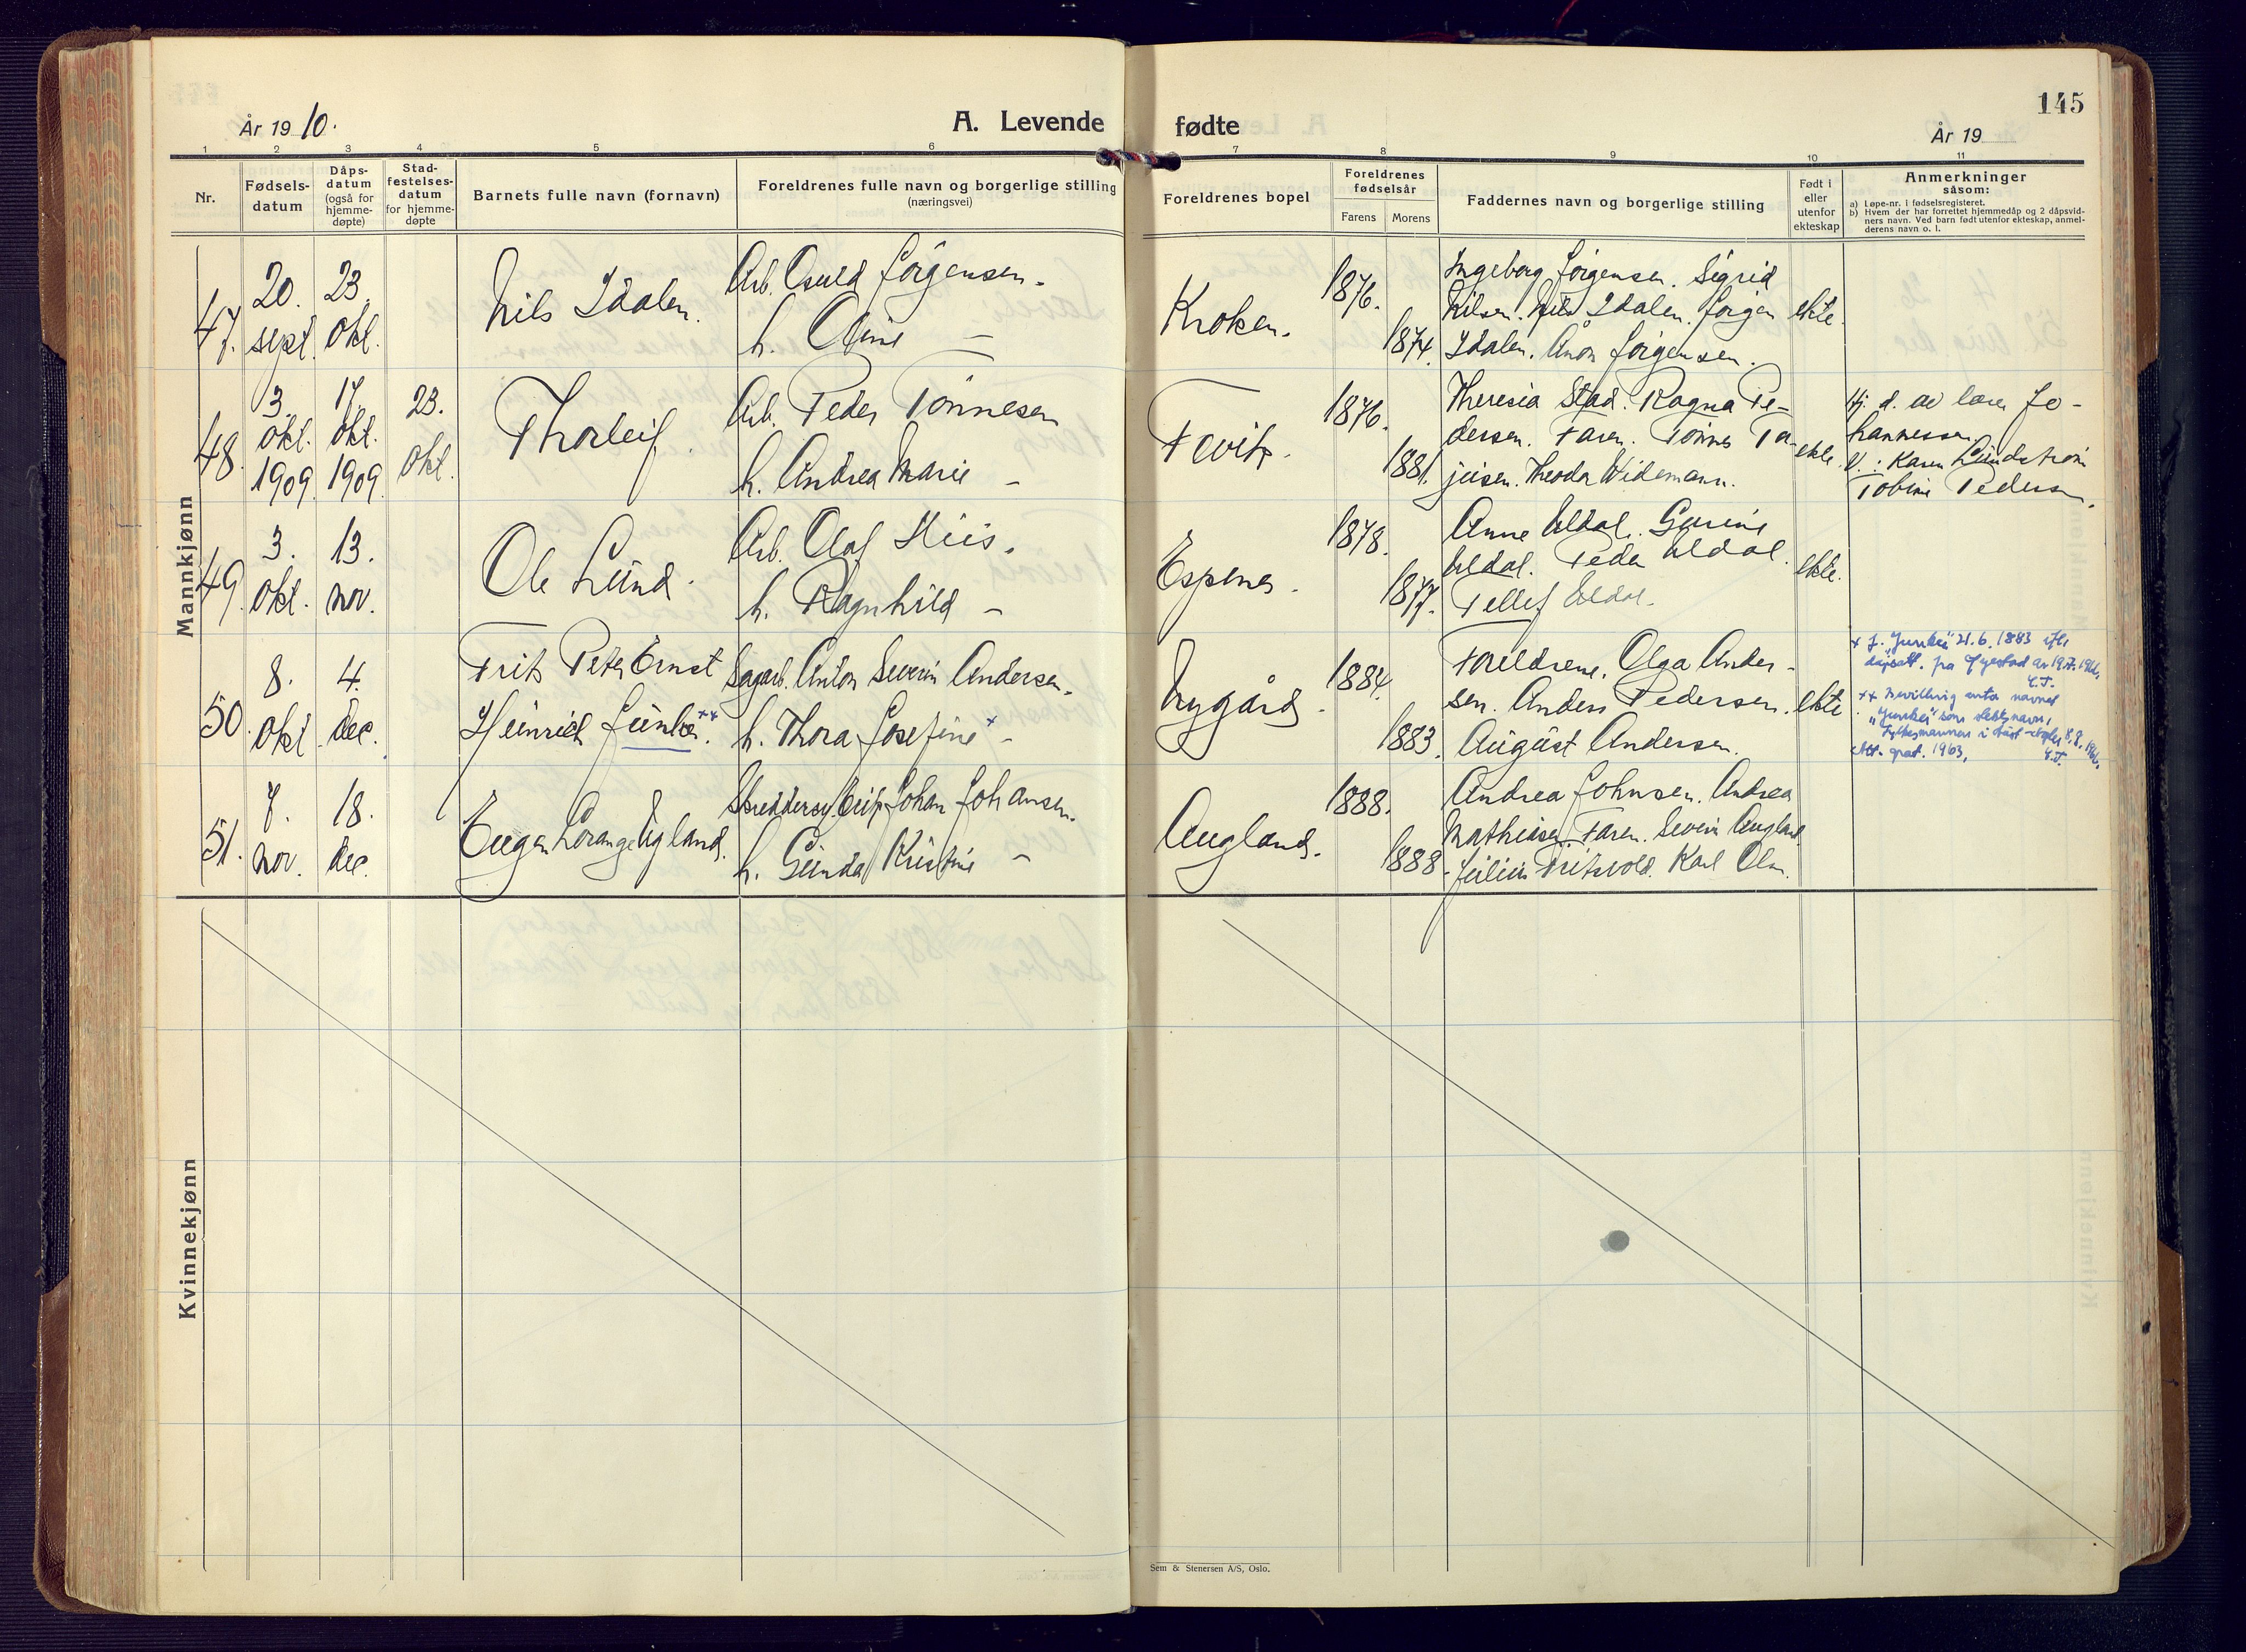 145
År 1910.
A. Levende
fødte
År 19
1 2 3 4 5 6 7 8 9 10 11
Nr.
Fødsels-
datum
Dåps-
datum
(også for
hjemme-
døpte)
Stad-
festelses-
datum
for hjemme-
døpte
Barnets fulle navn (fornavn)
Foreldrenes fulle navn og borgerlige stilling
(næringsvei)
Foreldrenes bopel
Foreldrenes
fødselsår
Farens Morens
Faddernes navn og borgerlige stilling
Født i
eller
utenfor
ekteskap
Anmerkninger
såsom:
a) Løpe-nr. i fødselsregisteret.
b) Hvem der har forrettet hjemmedåp og 2 dåpsvid-
ners navn. Ved barn født utenfor ekteskap, anmel-
derens navn o. l.
Mannkjønn
47.
20.
sept.
23.
okt.
Nils Idalen.
Arb. Osuld Jörgensen.
h. Oline —
Kroken.
1876.
1874.
Ingeborg Jörgensen. Sigrid
Nilsen. Nils Idalen. Jörgen
Idalen. Anon Jörgensen.
ekte.
48.
3.
okt.
1909
17.
okt.
1909
23.
okt.
Thorleif.
Arb. Peder Tönnesen
h. Andrea Marie —
Fevik.
1876.
1881.
Theresia Stad. Ragna Pe-
dersen. Faren. Tönnes Ta-
jeisen. Theodor Widemann.
ekte.
Hj. d. av lærer Jo-
hannessen
V.: Karen Lundström
Tobine Pedersen.
49.
3.
okt.
13.
nov.
Ole Lund.
Arb. Olaf Hiis.
h. Ragnhild —
Espenes.
1878.
1877.
Anne Eldal. Gurine
Eldal. Peder Eldal.
Tellef Eldal.
ekte.
50.
8.
okt.
4.
dec.
Frits Peter Ernst
Heinrich Junker. ++
Sagarb. Anton Severin Andersen.
h. Thora Josefine + —
Nygård.
1884.
1883.
Foreldrene. Olga Ander-
sen. Anders Pedersen.
August Andersen.
ekte
+ f. "Junker" 21.6.1883 ifle
dåpsatt. fra Fyrestad av 19.7.1966.
E.T.
++ Bevilling anta navnet
"Junker" som slektsnavn,
Fylkesmannen i Aust-Agder 8.8.1966.
Att. grat. 1963.
E.T.
51.
7.
nov.
18.
dec.
Eugen Lorange Ugland.
Skreddersv. Leif Johan Johansen.
h. Gunda Kristine —
Augland.
1888.
1888.
Andrea Johnsen. Andrea
Mathiasen. Faren. Severin Augland.
Julius Fritsvold. Karl Olsn.
Kvinnekjønn
Sem & Stenersen A/S, Oslo.